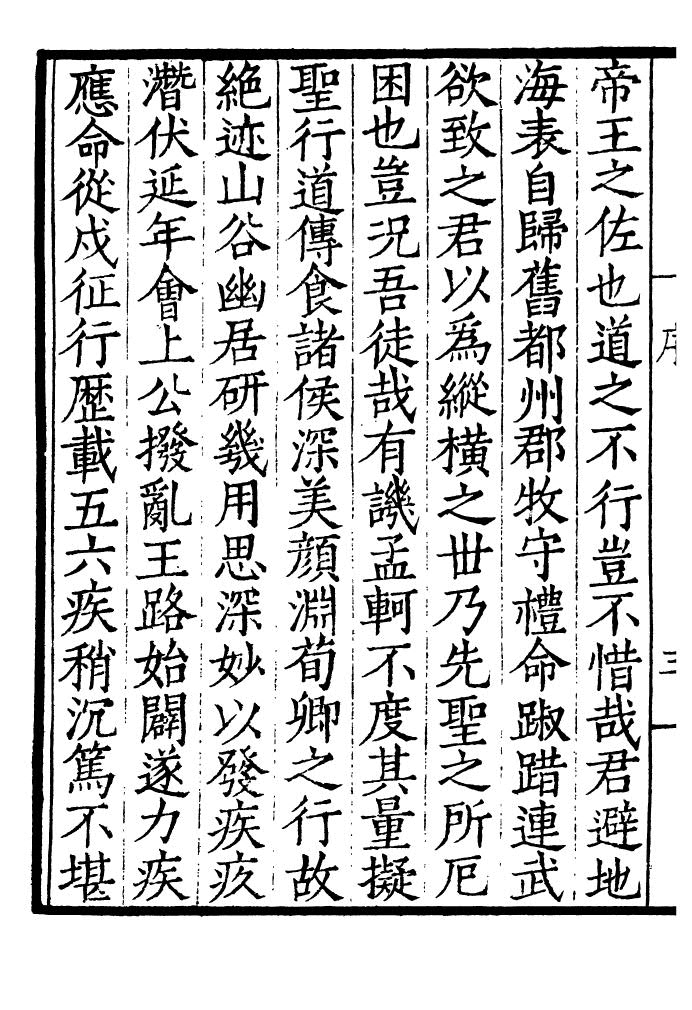 帝王之佐也道之不行豈不惜哉君避地
海表自歸舊都州郡牧守禮命踧踖連武
欲致之君以爲縱橫之丗乃先聖之所厄
困也豈況吾徒哉有譏孟軻不度其量擬
聖行道傳食諸侯深美顔淵荀卿之行故
絶迹山谷幽居研㡬用思深妙以發疾疢
潛伏延年會上公撥亂王路始闢遂力疾
應命從戍征行歴載五六疾稍沉篤不堪
序
三